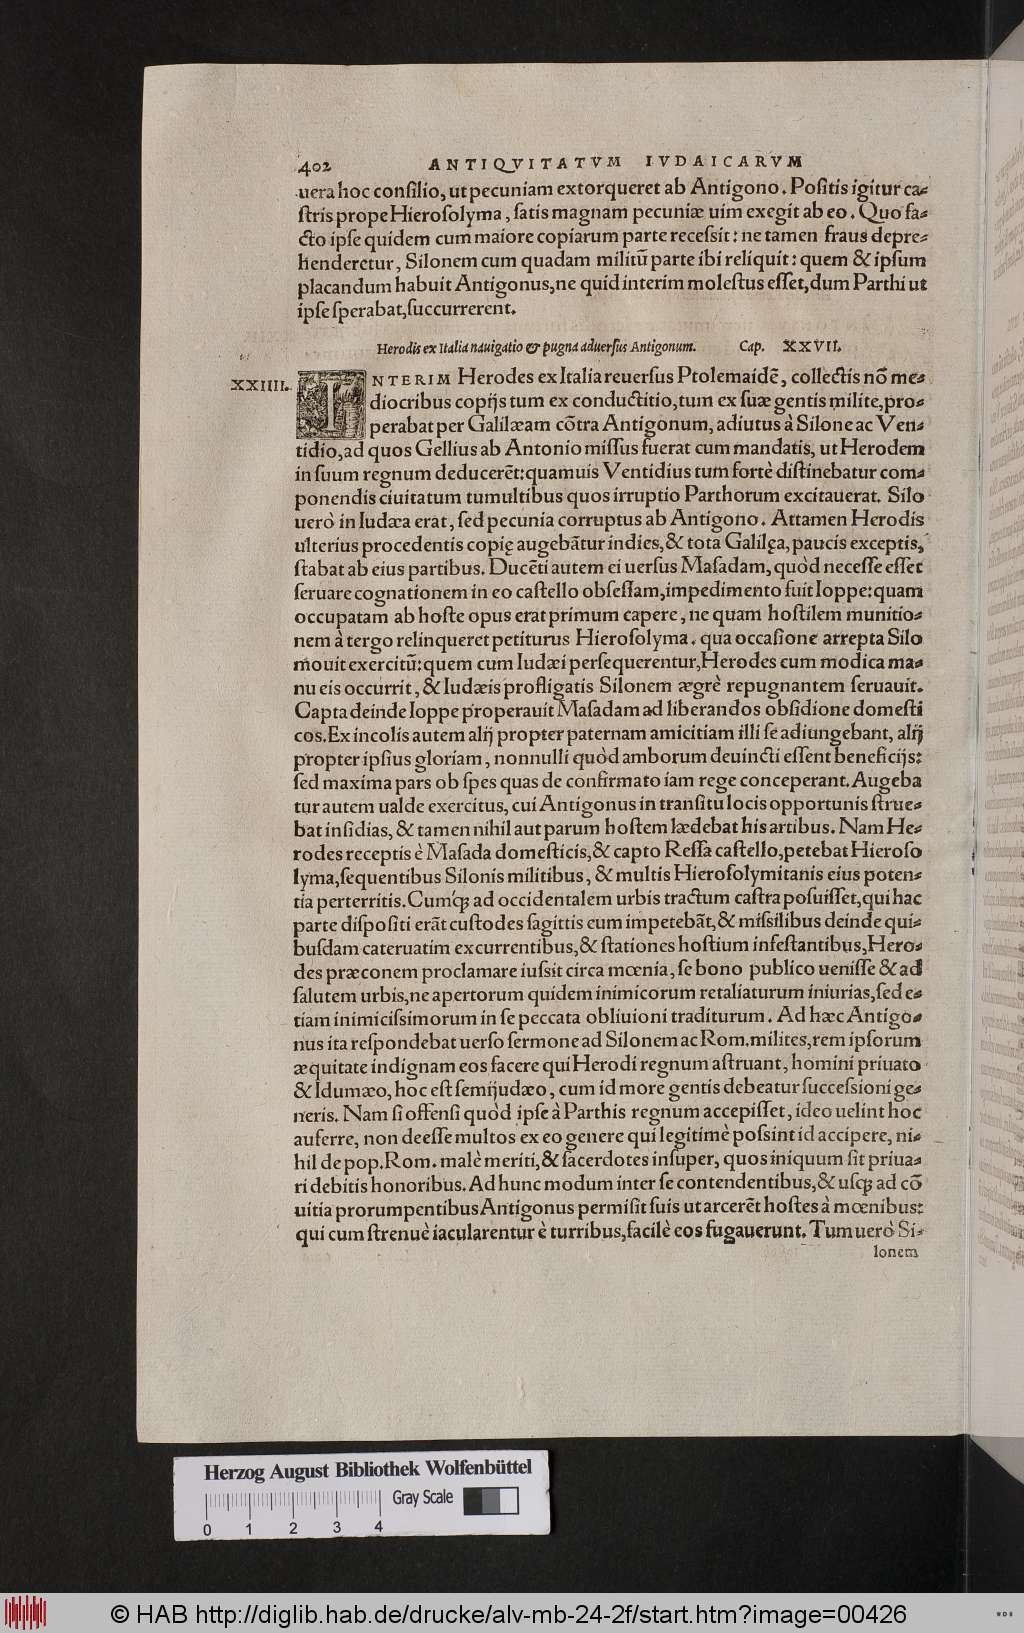 402 ANTIQVITATVM IVDAICARVM
uera hoc consilio, ut pecuniam extorqueret ab Antigono. Positis igitur ca⸗
stris prope Hierosolyma, satis magnam pecuniæ uim exegit ab eo. Quo fa⸗
cto ipse quidem cum maiore copiarum parte recessit: ne tamen fraus depre⸗
henderetur, Silonem cum quadam militũ parte ibi reliquit: quem & ipsum
placandum habuit Antigonus, ne quid interim molestus esset, dum Parthi ut
ipse sperabat, succurrerent.
Herodis ex Italia nauigatio & pugna aduersus Antigonum. Cap. XXVII.
XXIIII. INTERIM Herodes ex Italia reuersus Ptolemaidẽ, collectis nõ me⸗
diocribus copijs tum ex conductitio, tum ex suæ gentis milite, pro⸗
perabat per Galilæam cõtra Antigonum, adiutus à Silone ac Ven⸗
tidio, ad quos Gellius ab Antonio missus fuerat cum mandatis, ut Herodem
in suum regnum deducerẽt: quamuis Ventidius tum fortè distinebatur com⸗
ponendis ciuitatum tumultibus quos irruptio Parthorum excitauerat. Silo
uerò in Iudæa erat, sed pecunia corruptus ab Antigono. Attamen Herodis
ulterius procedentis copię augebãtur indies, & tota Galilęa, paucis exceptis,
stabat ab eius partibus. Ducẽti autem ei uersus Masadam, quòd necesse esset
seruare cognationem in eo castello obsessam, impedimento fuit Ioppe: quam
occupatam ab hoste opus erat primum capere, ne quam hostilem munitio⸗
nem à tergo relinqueret petiturus Hierosolyma. qua occasione arrepta Silo
mouit exercitũ: quem cum Iudæi persequerentur, Herodes cum modica ma⸗
nu eis occurrit, & Iudæis profligatis Silonem ægrè repugnantem seruauit.
Capta deinde Ioppe properauit Masadam ad liberandos obsidione domesti
cos. Ex incolis autem alij propter paternam amicitiam illi se adiungebant, alij
propter ipsius gloriam, nonnulli quòd amborum deuincti essent beneficijs:
sed maxima pars ob spes quas de confirmato iam rege conceperant. Augeba
tur autem ualde exercitus, cui Antigonus in transitu locis opportunis strue⸗
bat insidias, & tamen nihil aut parum hostem lædebat his artibus. Nam He⸗
rodes receptis è Masada domesticis, & capto Ressa castello, petebat Hieroso
lyma, sequentibus Silonis militibus, & multis Hierosolymitanis eius poten⸗
tia perterritis. Cumq́; ad occidentalem urbis tractum castra posuisset, qui hac
parte dispositi erãt custodes sagittis eum impetebãt, & missilibus deinde qui⸗
busdam cateruatim excurrentibus, & stationes hostium infestantibus, Hero⸗
des præconem proclamare iussit circa mœnia, se bono publico uenisse & ad
salutem urbis, ne apertorum quidem inimicorum retaliaturum iniurias, sed e⸗
tiam inimicissimorum in se peccata obliuioni traditurum. Ad hæc Antigo⸗
nus ita respondebat uerso sermone ad Silonem ac Rom. milites, rem ipsorum
æquitate indignam eos facere qui Herodi regnum astruant, homini priuato
& Idumæo, hoc est semijudæo, cum id more gentis debeatur successioni ge⸗
neris. Nam si offensi quòd ipse à Parthis regnum accepisset, ideo uelint hoc
auferre, non deesse multos ex eo genere qui legitimè possint id accipere, ni⸗
hil de pop. Rom. malè meriti, & sacerdotes insuper, quos iniquum sit priua⸗
ri debitis honoribus. Ad hunc modum inter se contendentibus, & usq; ad cõ
uitia prorumpentibus Antigonus permisit suis ut arcerẽt hostes à mœnibus:
qui cum strenuè iacularentur è turribus, facilè eos fugauerunt. Tum uerò Si⸗
lonem
Herzog August Bibliothek Wolfenbüttel
Gray Scale
0 1 2 3 4
© HAB http://diglib.hab.de/drucke/alv-mb-24-2f/start.htm?image=00426